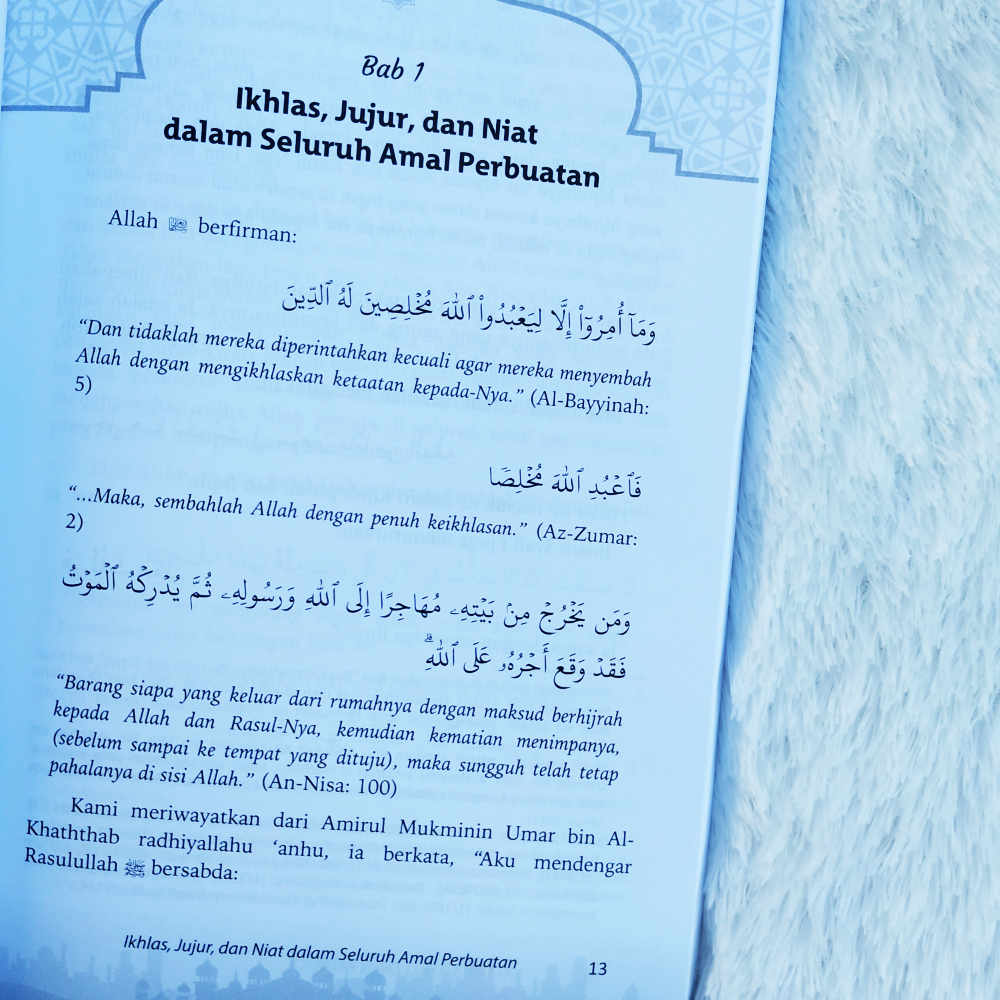 Bab 1
Ikhlas, Jujur, dan Niat
dalam Seluruh Amal Perbuatan
Allah ﷻ berfirman:
وَمَآ أُمِرُوٓا۟ إِلَّا لِيَعْبُدُوا۟ ٱللَّهَ مُخْلِصِينَ لَهُ ٱلدِّينَ
“Dan tidaklah mereka diperintahkan kecuali agar mereka menyembah
Allah dengan mengikhlaskan ketaatan kepada-Nya.” (Al-Bayyinah:
5)
فَٱعْبُدِ ٱللَّهَ مُخْلِصًا
“...Maka, sembahlah Allah dengan penuh keikhlasan.” (Az-Zumar:
2)
وَمَن يَخْرُجْ مِنۢ بَيْتِهِۦ مُهَاجِرًا إِلَى ٱللَّهِ وَرَسُولِهِۦ ثُمَّ يُدْرِكْهُ ٱلْمَوْتُ
فَقَدْ وَقَعَ أَجْرُهُۥ عَلَى ٱللَّهِ ۗ
“Barang siapa yang keluar dari rumahnya dengan maksud berhijrah
kepada Allah dan Rasul-Nya, kemudian kematian menimpanya,
(sebelum sampai ke tempat yang dituju), maka sungguh telah tetap
pahalanya di sisi Allah.” (An-Nisa: 100)
Kami meriwayatkan dari Amirul Mukminin Umar bin Al-
Khaththab radhiyallahu ‘anhu, ia berkata, “Aku mendengar
Rasulullah ﷺ bersabda:
Ikhlas, Jujur, dan Niat dalam Seluruh Amal Perbuatan
13